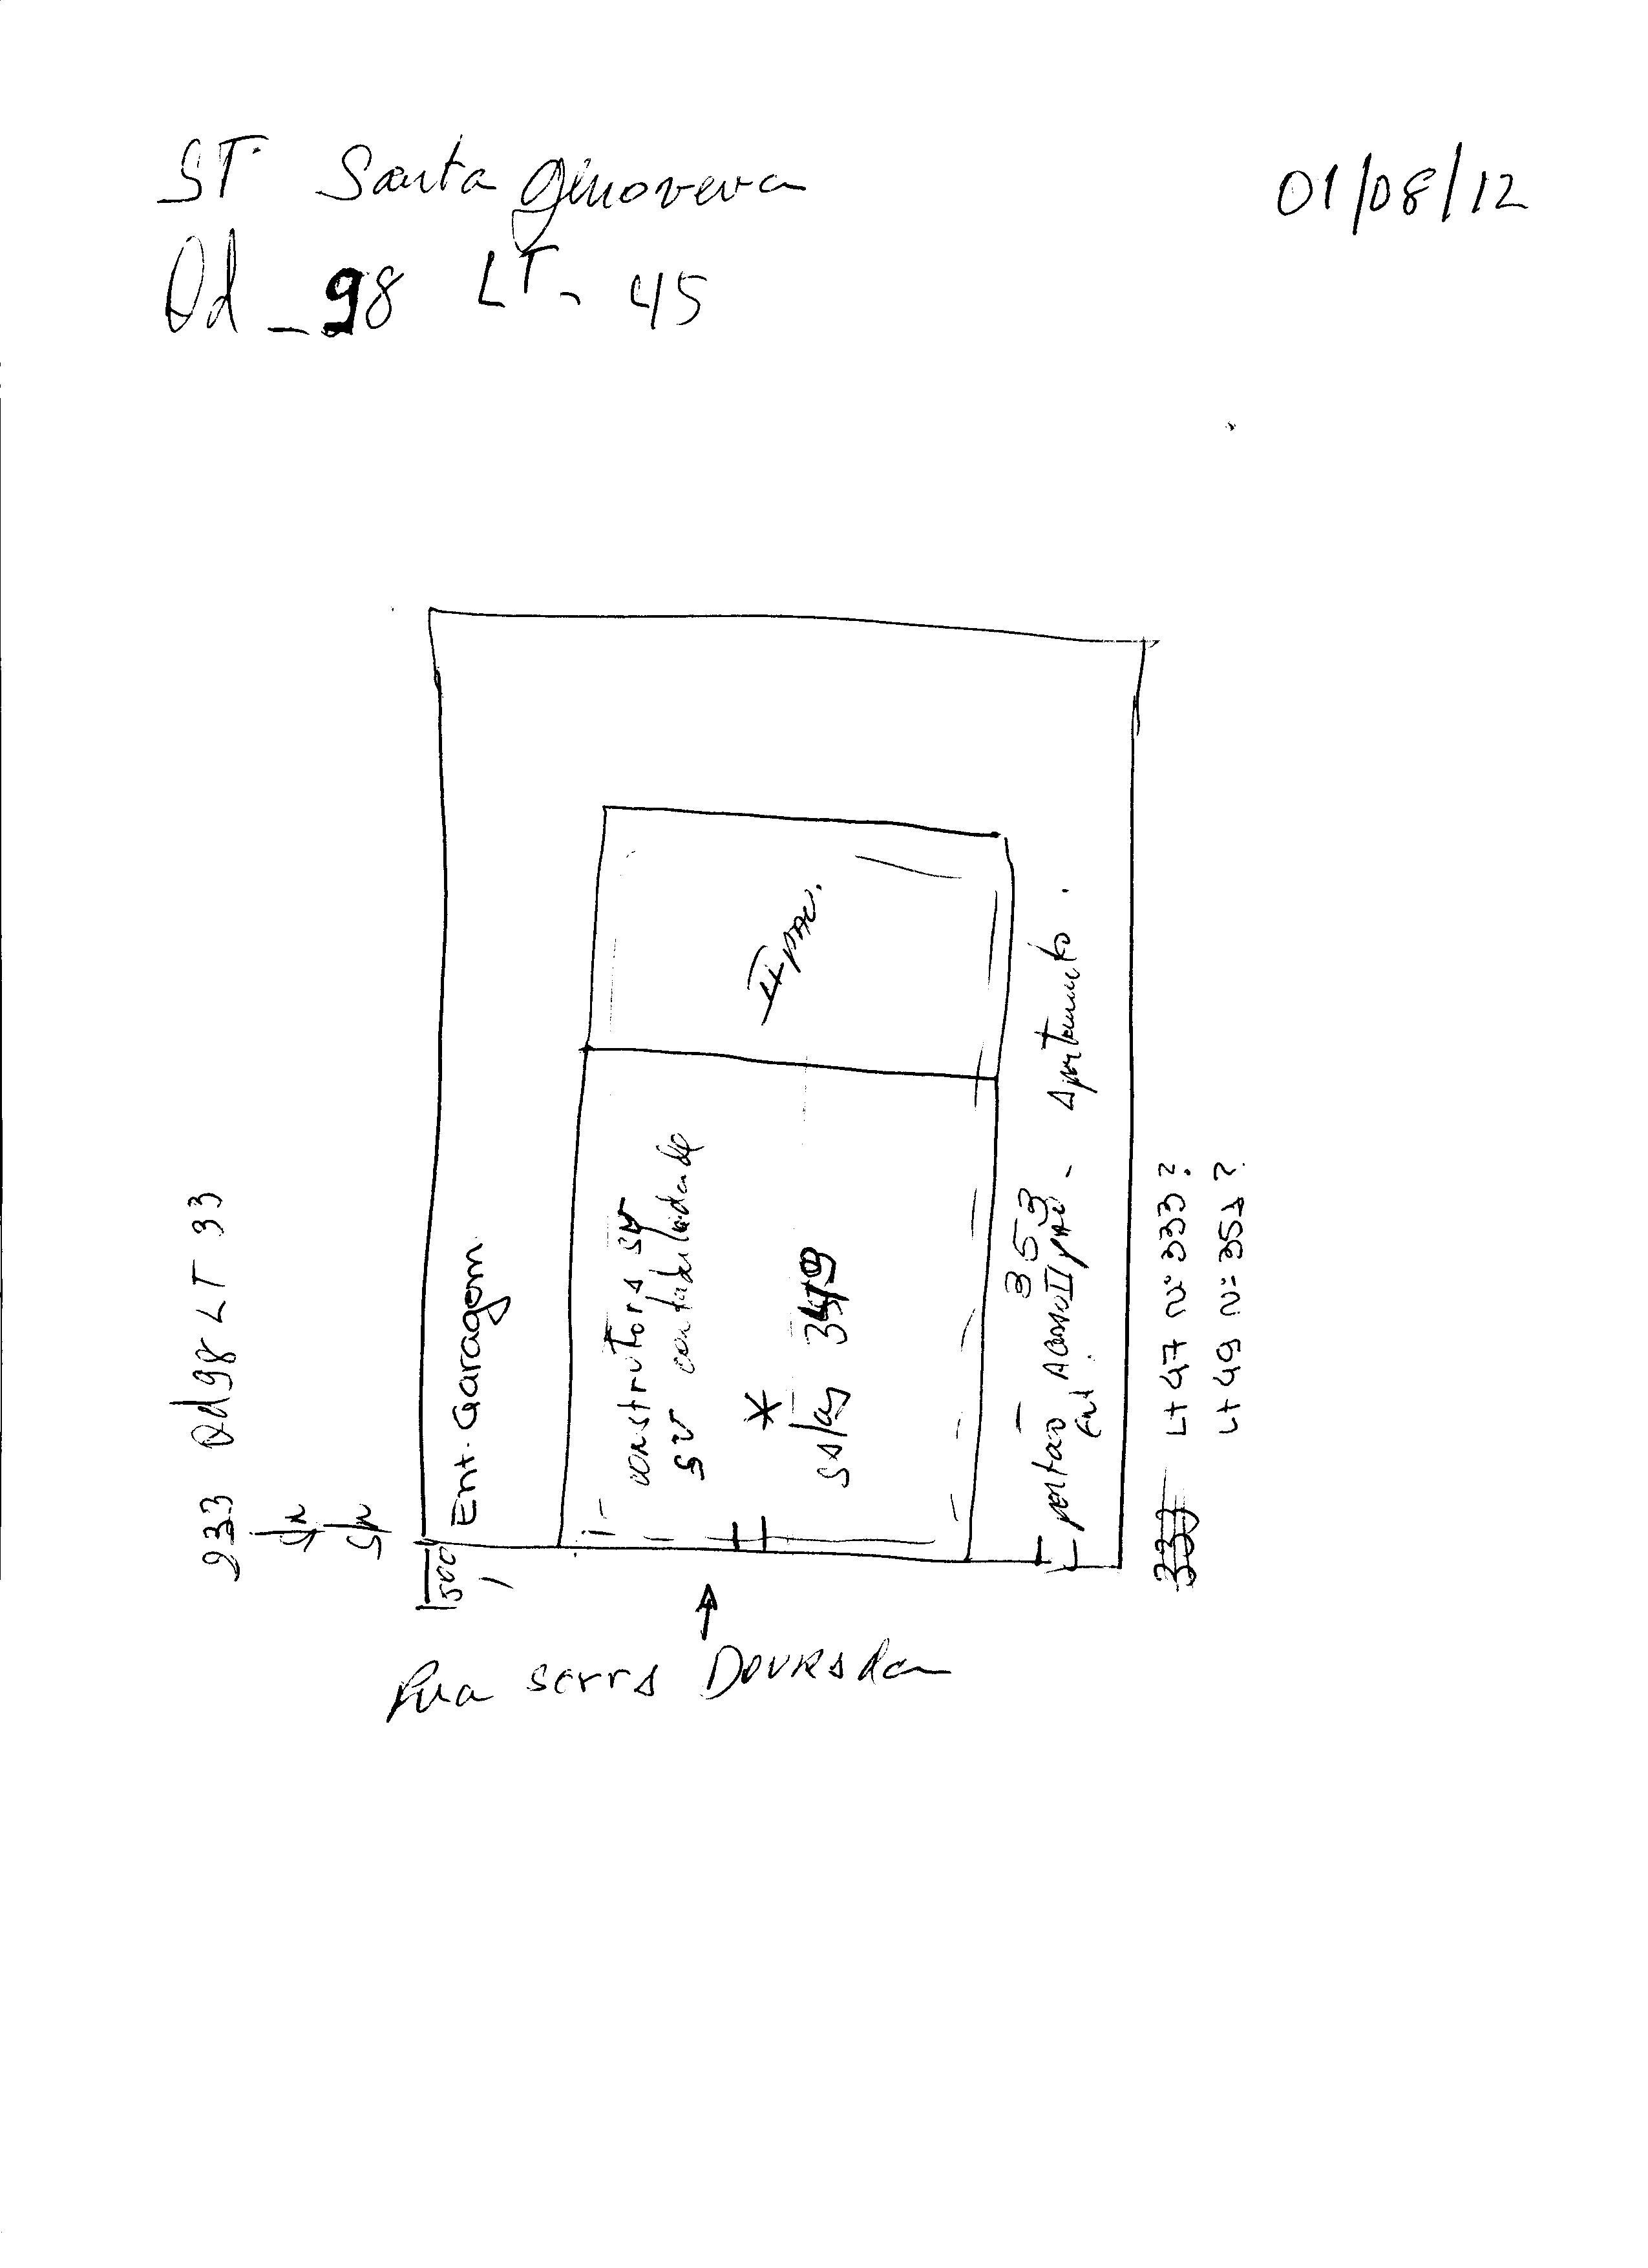 ST. Santa Genoveva
01/08/12
Qd - 98 LT - 45
933 Qd 98 LT 33
Ent. Garagem
II pav.
construtora SV
SV contabilidade
*
salas 349
353
portão Acesso II pav - apartamento.
Lt 47 nº 333?
Lt 49 nº 353?
333
500
Rua serra DOURADA